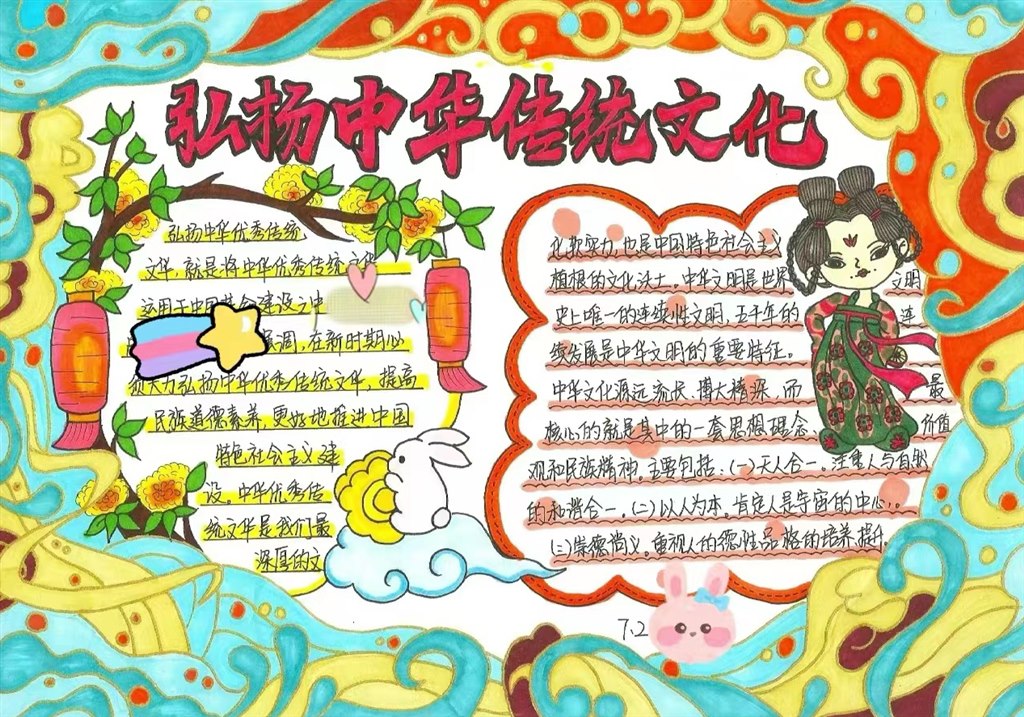 弘扬中华传统文化
弘扬中华优秀传统
文华，就是将中华优秀传统文华
运用于中国革命建设之中
民国，在新时期必
须大力弘扬中华优秀传统文华，提高
民族道德素养，更好地推进中国
特色社会主义建
设。中华优秀传
统文华是我们最
深厚的文
化软实力，也是中国特色社会主义
植根的文化沃土。中华文明是世界文明
史上唯一的连续性文明，五千年的连
续发展是中华文明的重要特征。
中华文化源远流长、博大精深，而最
核心的就是其中的一套思想理念、价值
观和民族精神。主要包括：(一)天人合一。注重人与自然
的和谐合一。(二)以人为本。肯定人是宇宙的中心。
(三)崇德尚义。重视人的德性品格的培养提升。
7、2